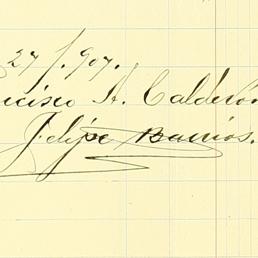 27/.907.
ncisco A. Calderón
Felipe Barrios.